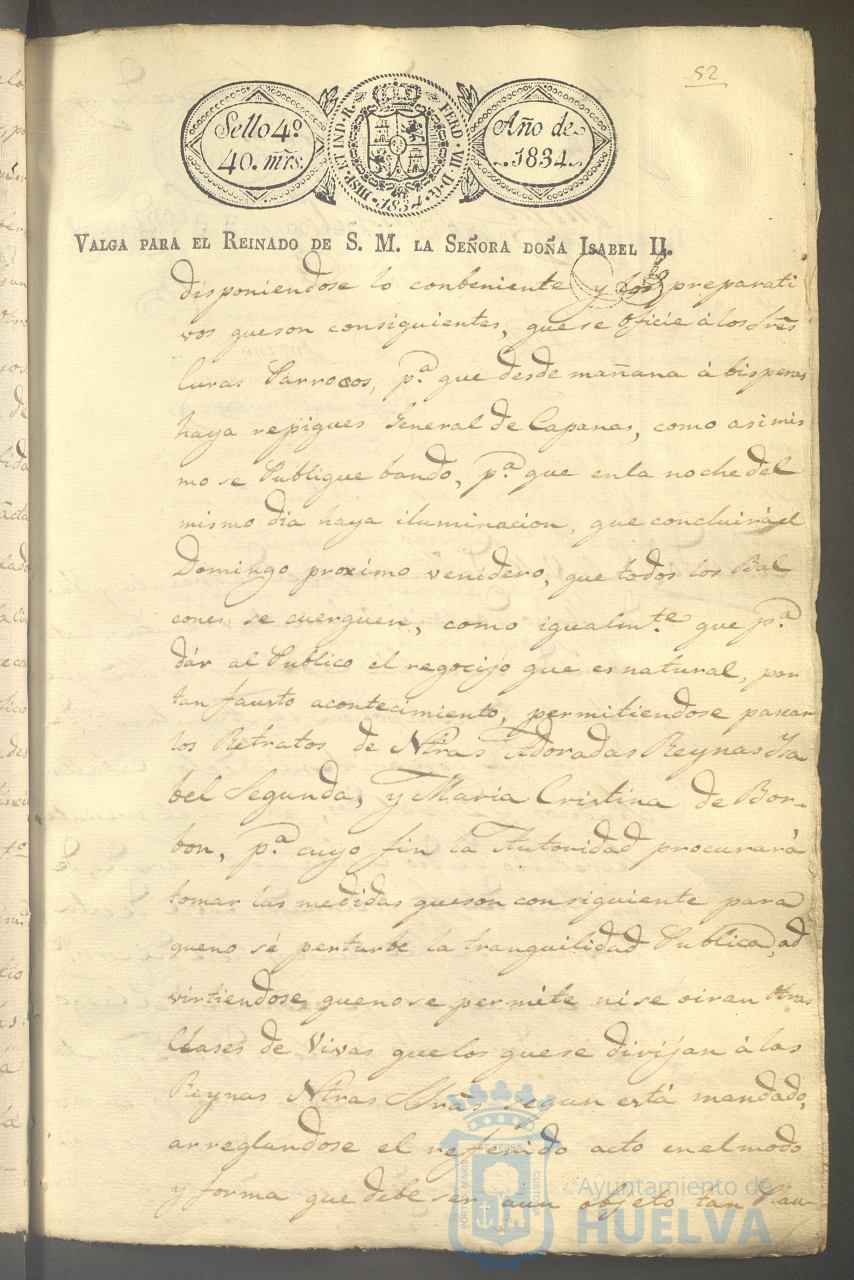 52
Sello 4.º
40. mrs.
HISP. ET IND. R. FERD. VII. D. G. 1834
Año de
1834.
VALGA PARA EL REINADO DE S. M. LA SEÑORA DOÑA ISABEL II.
disponiendose lo combeniente y los preparati
vos que son consiguientes, que se oficie á los Sres
Curas Parrocos, p.a que desde mañana á bisperas
haya repiques General de Capanas, como asimis
mo se Publique bando, p.a que en la noche del
mismo dia haya iluminacion, que concluirá el
Domingo proximo venidero, que todos los Bal
cones se cuerguen, como igualmte que p.a
dár al Publico el regocijo que es natural, por
tan fausto acontecimiento, permitiendose pasear
los Retratos de Ntras Adoradas Reynas Isa
bel Segunda, y Maria Cristina de Bor-
bon, p.a cuyo fin la Autoridad procurará
tomar las medidas que son consiguiente para
que no sé perturbe la tranquilidad Publica, ad
virtiendose que no se permite ni se oiran otras
Clases de Vivas que los que sé dirijan á las
Reynas Ntras Sras segun está mandado,
arreglandose el referido acto en el modo
y forma que debe ser aun objeto tan
Ayuntamiento de
HUELVA
PORTUS MARIS ET TERRE CUSTODIA